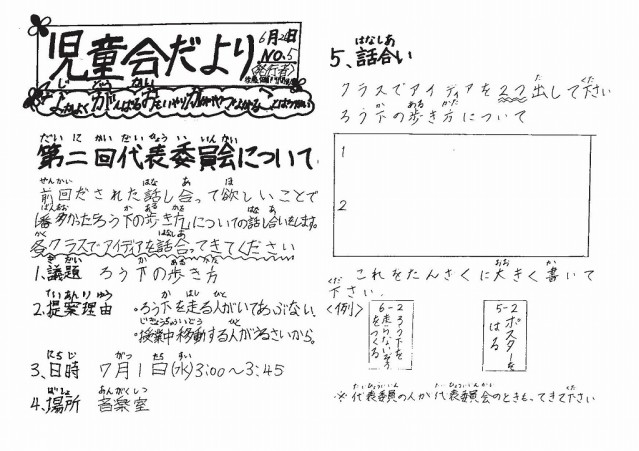 児童会だより
6月2日
NO.5
発行者
第二回代表委員会について
前回だされた話し合って欲しいことで
1番多かったろう下の歩き方についての話し合いをします。
各クラスでアイディアを話合ってきてください
1.議題 ろう下の歩き方
2.提案理由 ・ろう下を走る人がいてあぶない。
・授業中移動する人がうるさいから。
3.日時 7月1日(水)3:00〜3:45
4.場所 音楽室
5、話合い
クラスでアイディアを2つ出して下さい
ろう下の歩き方について
1
2
これをたんざくに大きく書いて
下さい。
〈例〉
6-2 ろう下を走らないぞうをつくる
5-2 ポスターをはる
※代表委員の人が代表委員会のときもってきて下さい